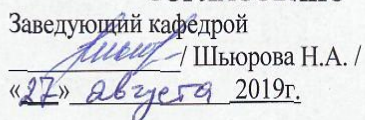 Заведующий кафедрой
/ Шьюрова Н.А. /
«27» августа 2019г.